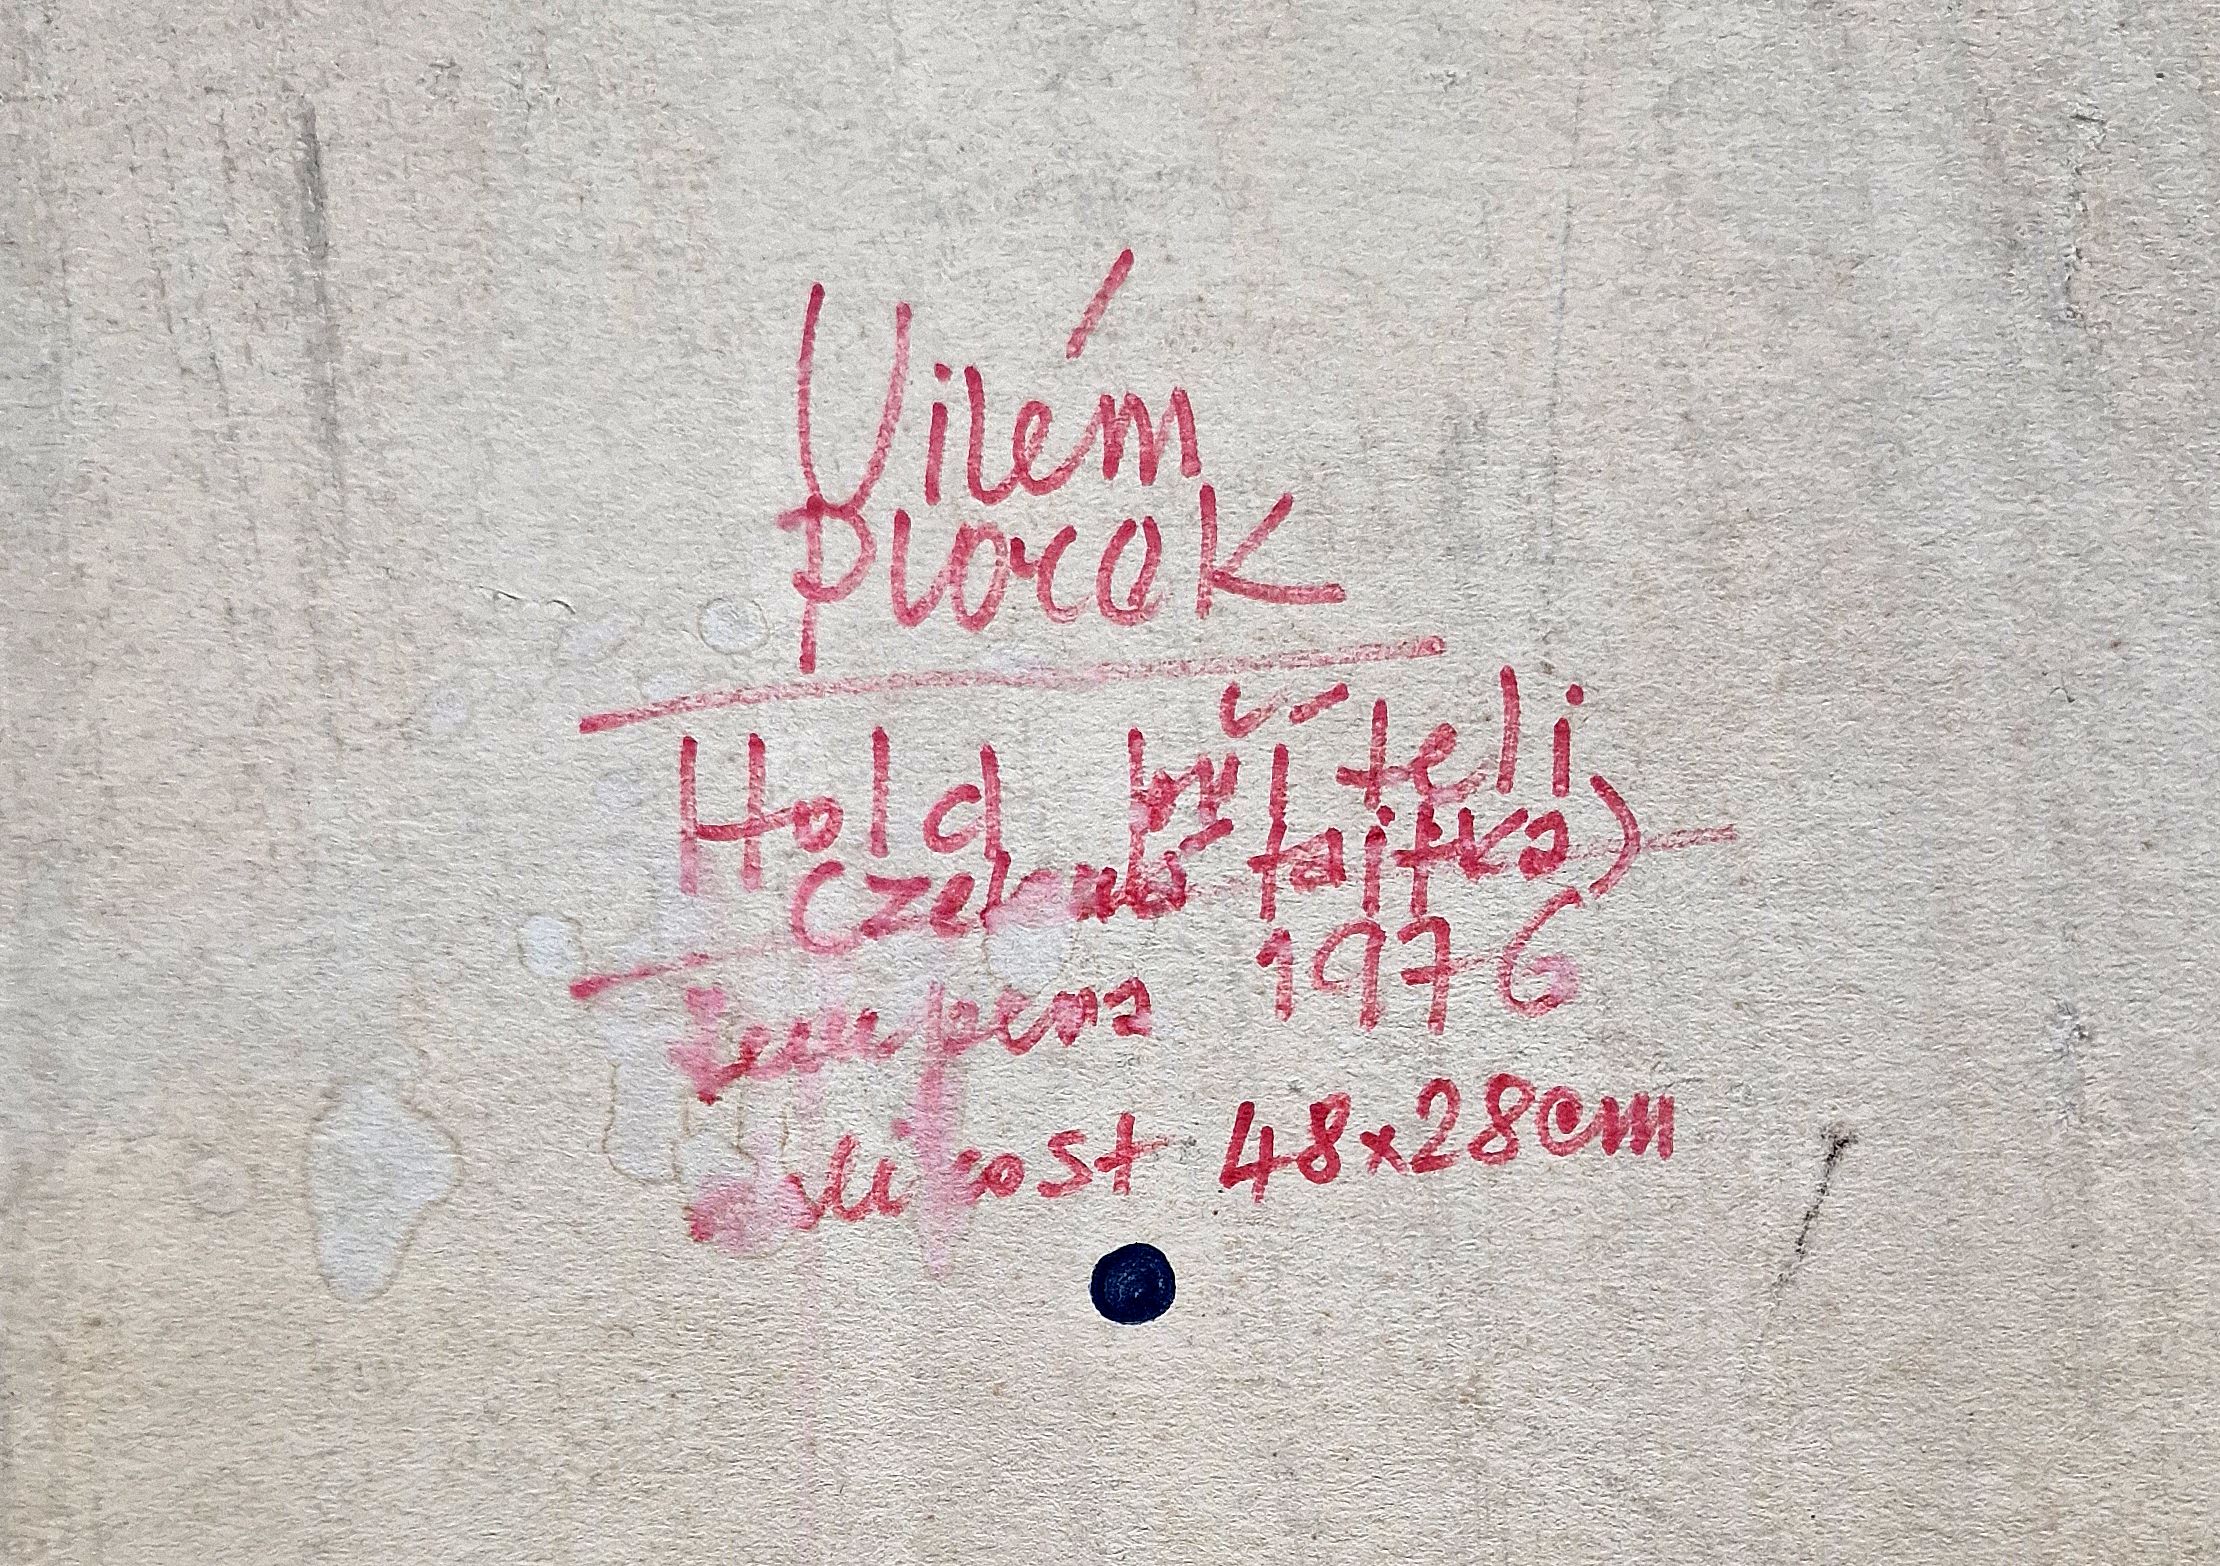 Vilém
Plocek
Hold příteli
(zelená fajfka)
Tempera 1976
velikost 48x28cm